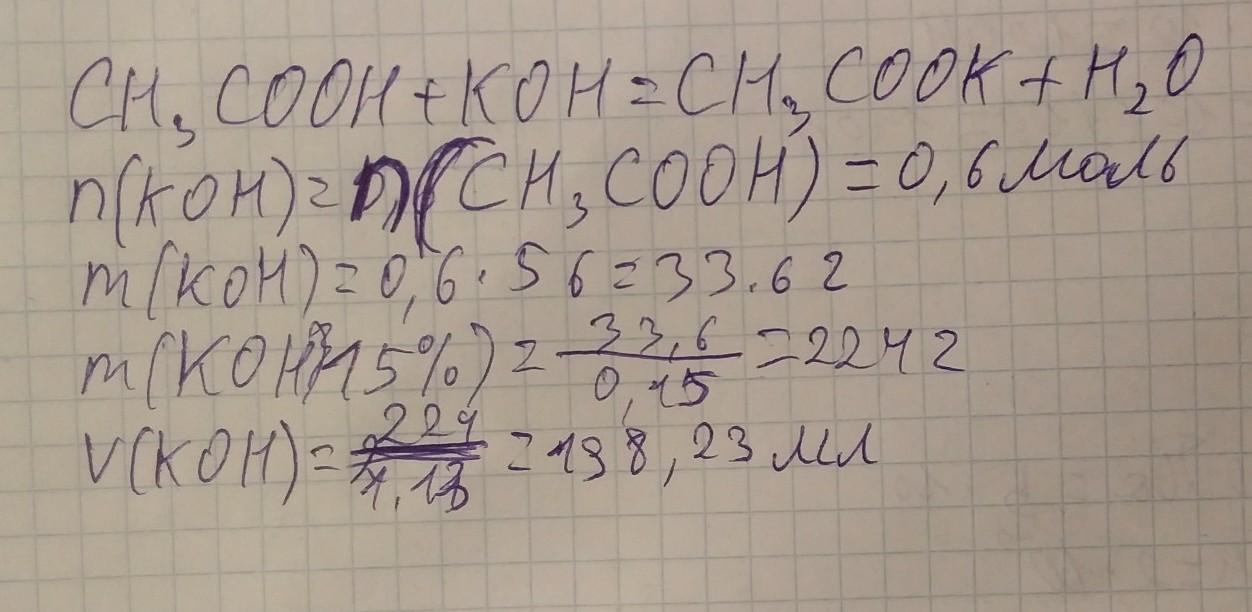 CH₃COOH + KOH = CH₃COOK + H₂O
n(KOH) = n(CH₃COOH) = 0,6 моль
m(KOH) = 0,6 · 56 = 33.6 г
m(KOH 15%) = 33,6 / 0,15 = 224 г
V(KOH) = 224 / 1,13 = 198,23 мл